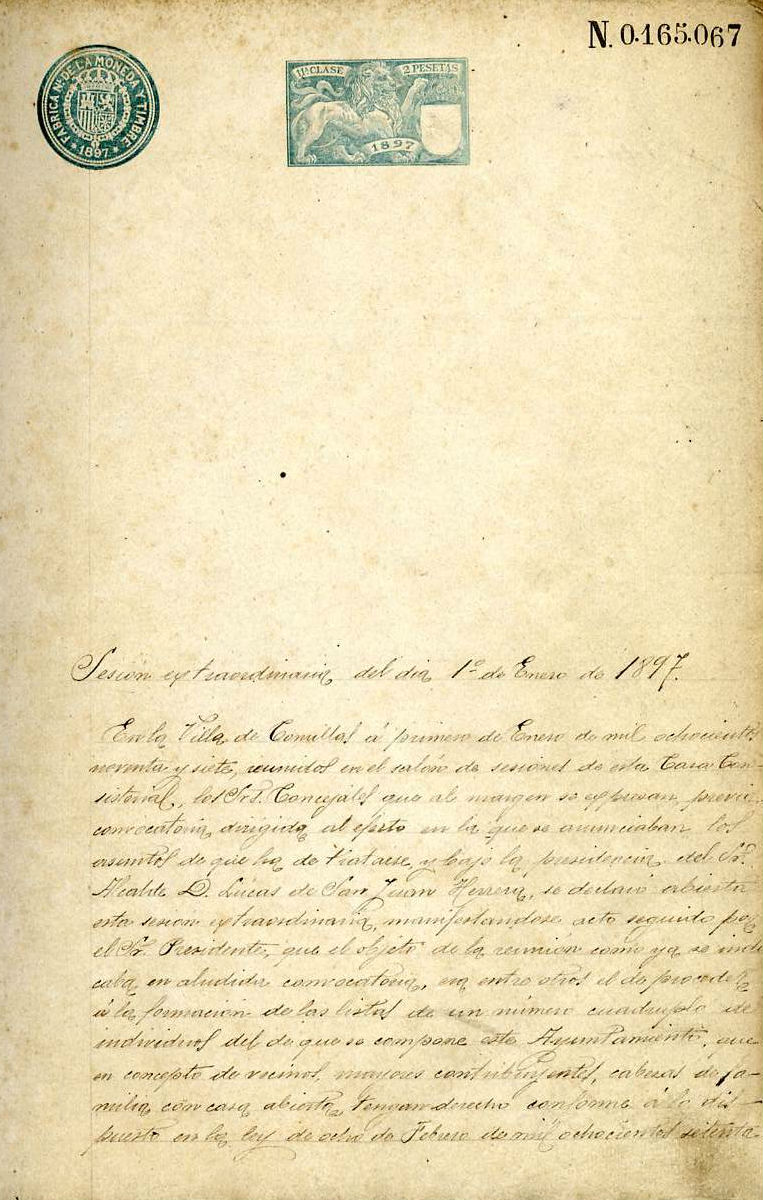 N. 0.165.067
FABRICA Nal. DE LA MONEDA Y TIMBRE
* 1897 *
11ª CLASE 2 PESETAS
1897
Sesión extraordinaria del dia 1º de Enero de 1897.
En la Villa de Comillas á primero de Enero de mil ochocientos
noventa y siete, reunidos en el salón de sesiones de esta Casa Con-
sistorial, los Srs. Concejales que al margen se expresan previa
convocatoria dirigida al efecto en la que se anunciaban los
asuntos de que ha de tratarse, y bajo la presidencia del Sr.
Alcalde D. Lucas de San Juan Herrera, se declaró abierta
esta sesion extraordinaria, manifestandose acto seguido por
el Sr. Presidente, que el objeto de la reunión como ya se indi
caba en aludida convocatoria, era entre otros el de proceder
á la formación de las listas de un número cuadruplo de
individuos del de que se compone este Ayuntamiento, que
en concepto de vecinos, mayores contribuyentes, cabezas de fa-
milia con casa abierta, tengan derecho conforme á lo dis-
puesto en la ley de ocho de Febrero de mil ochocientos setenta